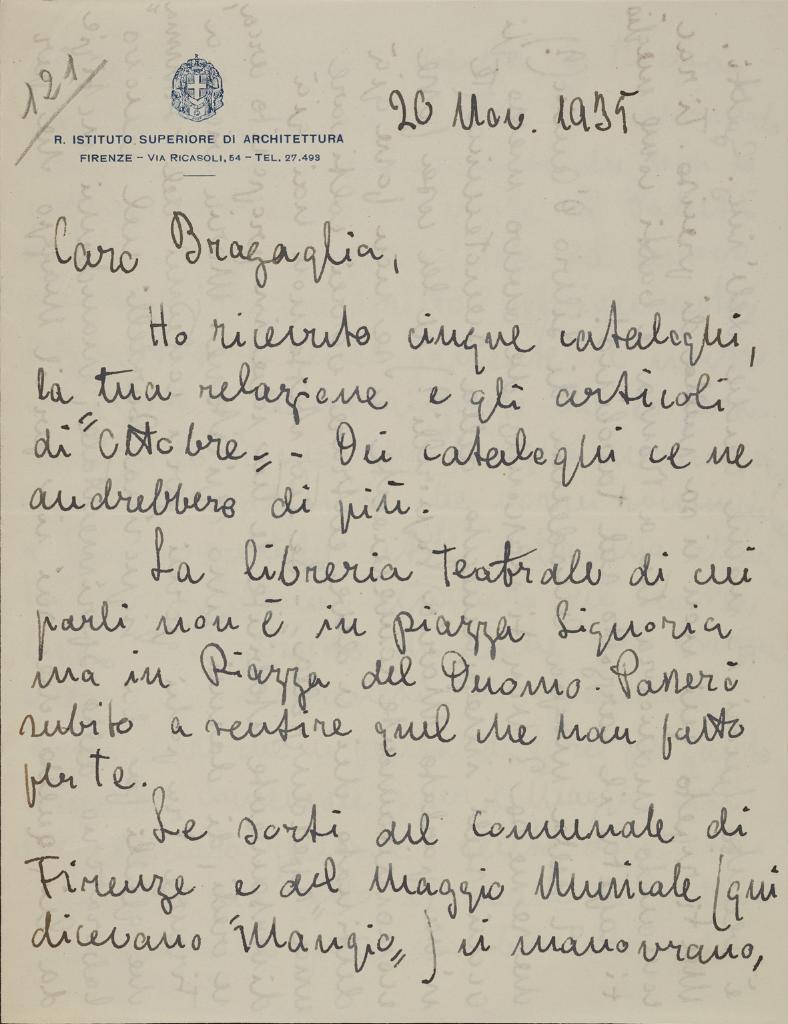 121
R. ISTITUTO SUPERIORE DI ARCHITETTURA
FIRENZE – VIA RICASOLI, 54 – TEL. 27.493
20 Nov. 1935
Caro Bragaglia,
Ho ricevuto cinque cataloghi,
la tua relazione e gli articoli
di "Ottobre" - Dei cataloghi ce ne
andrebbero di più.
La libreria teatrale di cui
parli non è in piazza Signoria
ma in Piazza del Duomo. Passerò
subito a sentire quel che han fatto
per te.
Le sorti del Comunale di
Firenze e del Maggio Musicale (qui
dicevano "Mangio") si manovrano,